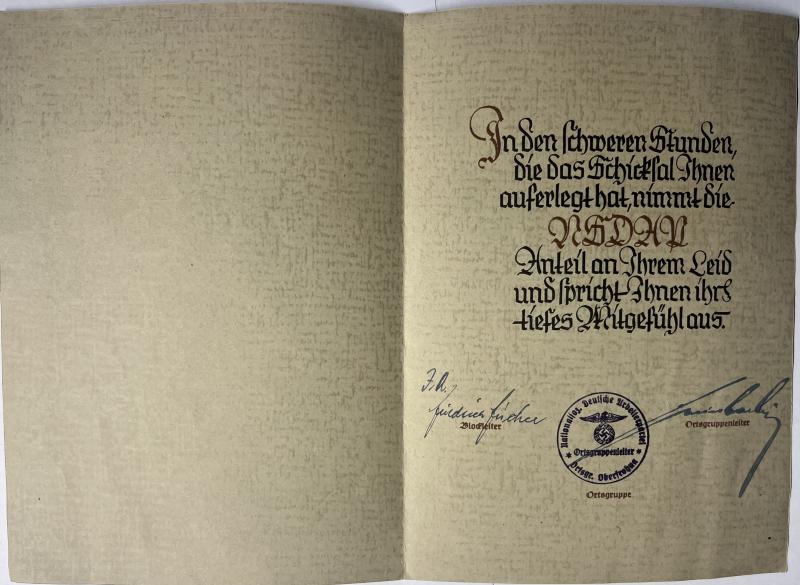 In den schweren Stunden,
die das Schicksal Ihnen
auferlegt hat, nimmt die
NSDAP
Anteil an Ihrem Leid
und spricht Ihnen ihr
tiefes Mitgefühl aus.
Blockleiter
Nationalsoz. Deutsche Arbeiterpartei
Ortsgruppenleiter
Ortsgr. Oberfrohna
Ortsgruppenleiter
Ortsgruppe